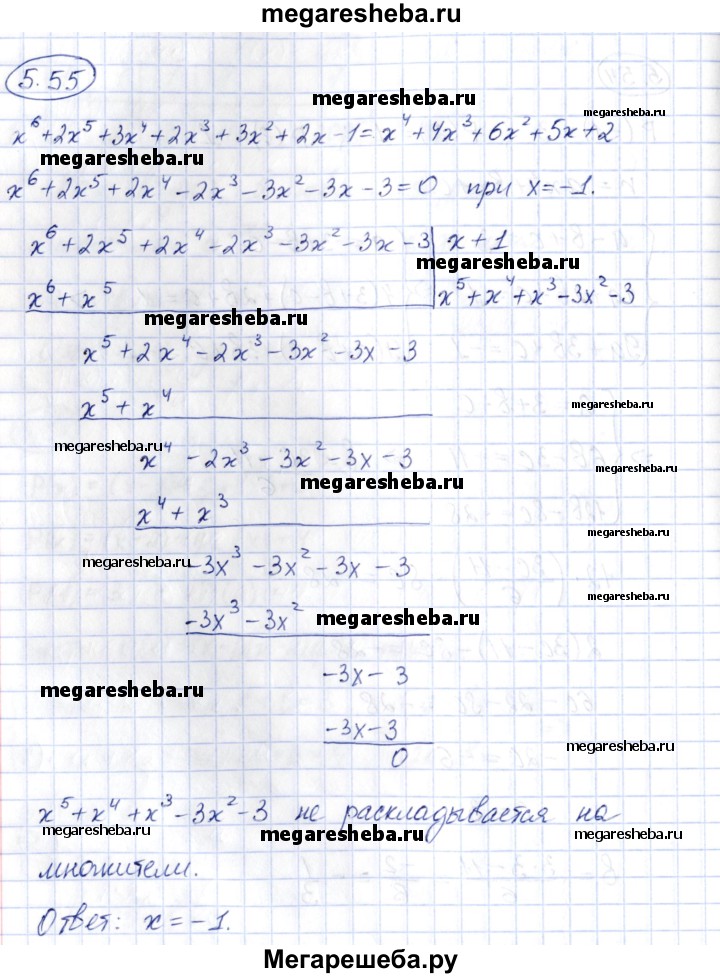 megaresheba.ru
5.55
megaresheba.ru
megaresheba.ru
x⁶+2x⁵+3x⁴+2x³+3x²+2x-1=x⁴+4x³+6x²+5x+2
megaresheba.ru
x⁶+2x⁵+2x⁴-2x³-3x²-3x-3=0 при x=-1.
x⁶+2x⁵+2x⁴-2x³-3x²-3x-3 | x+1
megaresheba.ru
x⁶+x⁵ | x⁵+x⁴+x³-3x²-3
megaresheba.ru
x⁵+2x⁴-2x³-3x²-3x-3
x⁵+x⁴
megaresheba.ru
megaresheba.ru
x⁴ -2x³-3x²-3x-3
megaresheba.ru
megaresheba.ru
x⁴+x³
megaresheba.ru
megaresheba.ru
-3x³-3x²-3x-3
megaresheba.ru
-3x³-3x²
megaresheba.ru
-3x-3
megaresheba.ru
-3x-3
megaresheba.ru
0
x⁵+x⁴+x³-3x²-3 не раскладывается на
megaresheba.ru
megaresheba.ru
megaresheba.ru
множители.
Ответ: x=-1.
Мегарешеба.ру